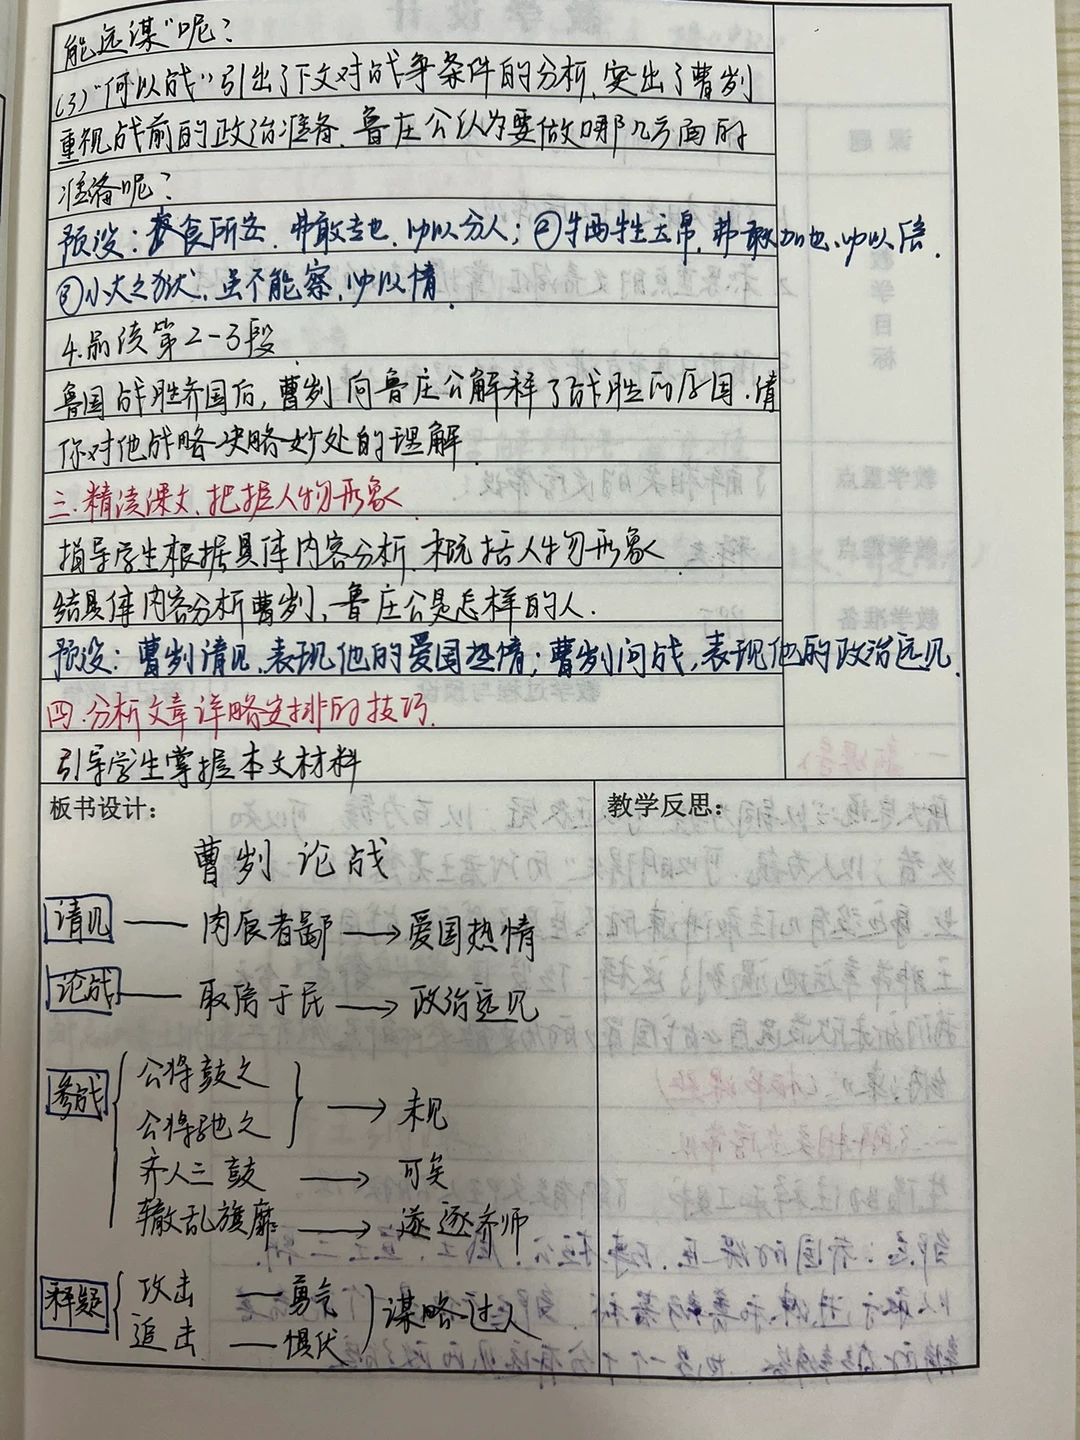 能远谋"呢？
(3)"何以战"引出了下文对战争条件的分析,突出了曹刿
重视战前的政治准备.鲁庄公认为要做哪几方面的
准备呢？
预设：衣食所安,弗敢专也,必以分人；②牺牲玉帛,弗敢加也,必以信.
③小大之狱,虽不能察,必以情.
4.品读第2-3段
鲁国战胜齐国后,曹刿向鲁庄公解释了战胜的原因.请
你对他战略决略妙处的理解.
三.精读课文,把握人物形象
指导学生根据具体内容分析,概括人物形象
结具体内容分析曹刿、鲁庄公是怎样的人.
预设：曹刿请见,表现他的爱国热情；曹刿问战,表现他的政治远见.
四.分析文章详略安排的技巧.
引导学生掌握本文材料
板书设计：
曹刿论战
请见 —— 肉食者鄙 → 爱国热情
论战 —— 取信于民 → 政治远见
参战
公将鼓之
公将驰之
→ 未见
齐人三鼓 → 可矣
辙乱旗靡 → 遂逐齐师
释疑
攻击 —— 勇气
追击 —— 惧伏
谋略过人
教学反思：